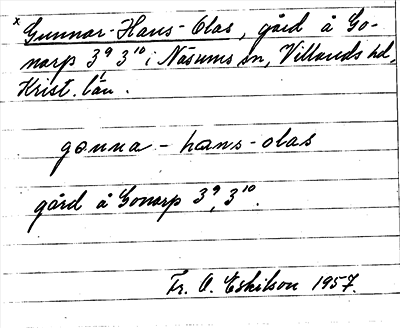 x Gunnar-Hans-Olas, gård å Go-
narp 3⁹ 3¹⁰ i Näsums sn, Villands hd,
Krist. län.
gonna - hans - olas
gård å Gonarp 3⁹, 3¹⁰.
Fr. O. Eskilson 1957.